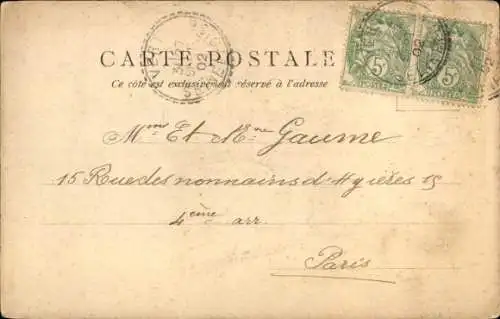 CARTE POSTALE
Ce côté est exclusivement réservé à l'adresse
5c 5c
02
Mme Et Mr Gaume
15 Rue des nonnains d'Hyières 15
4ème arr.
Paris